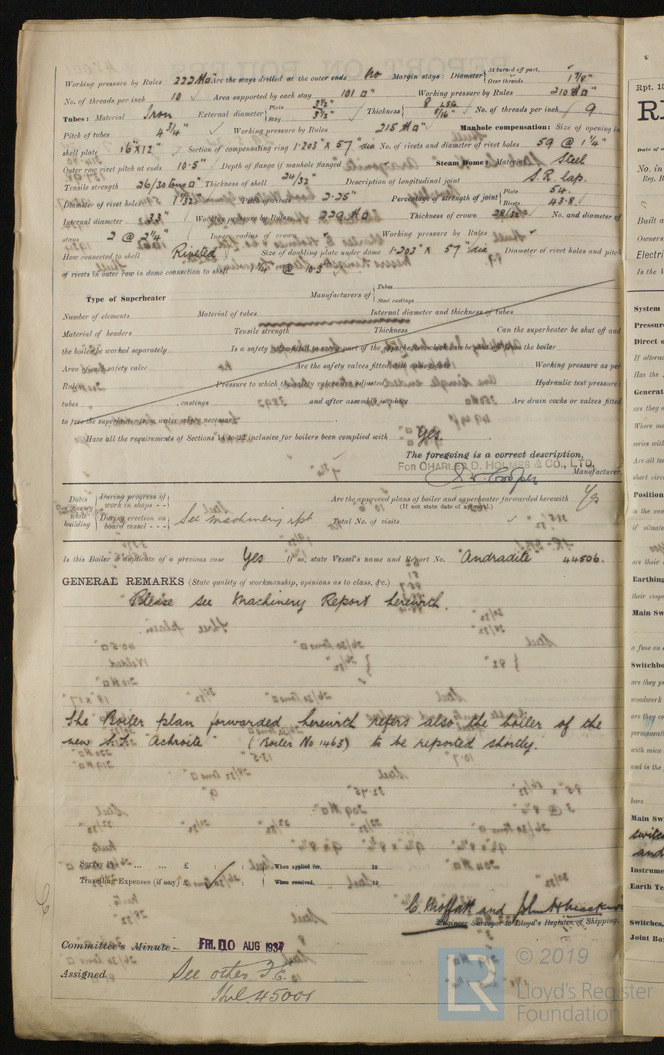 Working pressure by Rules 222 #□" Are the stays drilled at the outer ends No Margin stays: Diameter { At turned off part, or Over threads 1 7/8"
No. of threads per inch 10 Area supported by each stay 101 □" Working pressure by Rules 210 #□"
Tubes: Material Iron External diameter { Plain 3 1/2" Stay 3 1/2" Thickness { 8 LSG 5/16" No. of threads per inch 9
Pitch of tubes 4 3/4" Working pressure by Rules 215 #□" Manhole compensation: Size of opening in
shell plate 16" x 12" Section of compensating ring 1.203" x 57" dia No. of rivets and diameter of rivet holes 59 @ 1 1/4"
Outer row rivet pitch at ends 10.5" Depth of flange if manhole flanged Steam Dome: Material Steel
Tensile strength 26/30 tons □" Thickness of shell 24/32" Description of longitudinal joint S.R. lap.
Diameter of rivet holes 1 1/32" Pitch of rivets 2.25" Percentage of strength of joint { Plate 54. Rivets 43.8.
Internal diameter 33" Working pressure by Rules 229 #□" Thickness of crown 28/32" No. and diameter of
stays 2 @ 2 1/4" Inner radius of crown
How connected to shell Riveted Size of doubling plate under dome 1.203" x 57" dia Diameter of rivet holes and pitch
of rivets in outer row in dome connection to shell
Type of Superheater Manufacturers of { Tubes Steel castings
Number of elements Material of tubes Internal diameter and thickness of tubes
Material of headers Tensile strength Thickness Can the superheater be shut off and
the boiler be worked separately Is a safety valve fitted to every part of the superheater which can be shut off from the boiler
Area of each safety valve Are the safety valves fitted with easing gear Working pressure as per
Rules Pressure to which the safety valves are adjusted Hydraulic test pressure:
tubes castings and after assembly in place Are drain cocks or valves fitted
to free the superheater from water where necessary
Have all the requirements of Sections 14 to 22 inclusive for boilers been complied with Yes.
The foregoing is a correct description,
FOR CHARLES D. HOLMES & CO., LTD. Manufacturer.
Dates of Survey while building { During progress of work in shops - - During erection on board vessel - - - See machinery rpt Are the approved plans of boiler and superheater forwarded herewith Yes
(If not state date of approval.)
Total No. of visits
Is this Boiler a duplicate of a previous case Yes If so, state Vessel's name and Report No. "Andradite" 44506.
GENERAL REMARKS (State quality of workmanship, opinions as to class, &c.)
Please see Machinery Report herewith.
The Boiler plan forwarded herewith refers also the boiler of the
new S.T. "Achroite" (Boiler No 1463) to be reported shortly.
Survey Fee ... ... ... £ : : When applied for, 19
Travelling Expenses (if any) £ : : When received, 19
Engineer Surveyor to Lloyd's Register of Shipping.
Committee's Minute FRI. 10 AUG 1937
Assigned See other F.E.
Hul. 45001
© 2019
Lloyd's Register
Foundation
LR
Rpt. 13
Date of
No. in
Reg. B
Built a
Owners
Electri
Is the V
System
Pressure
Direct o
If alterna
Has the
General
are they
Position
Earthing
their resp
Main Sw
a fuse on
Switchbo
are they p
woodwork
are they co
permanently
with mica
and is the
bars
Main Sw
switch
and
Instrume
Earth Te
Switches,
Joint Box